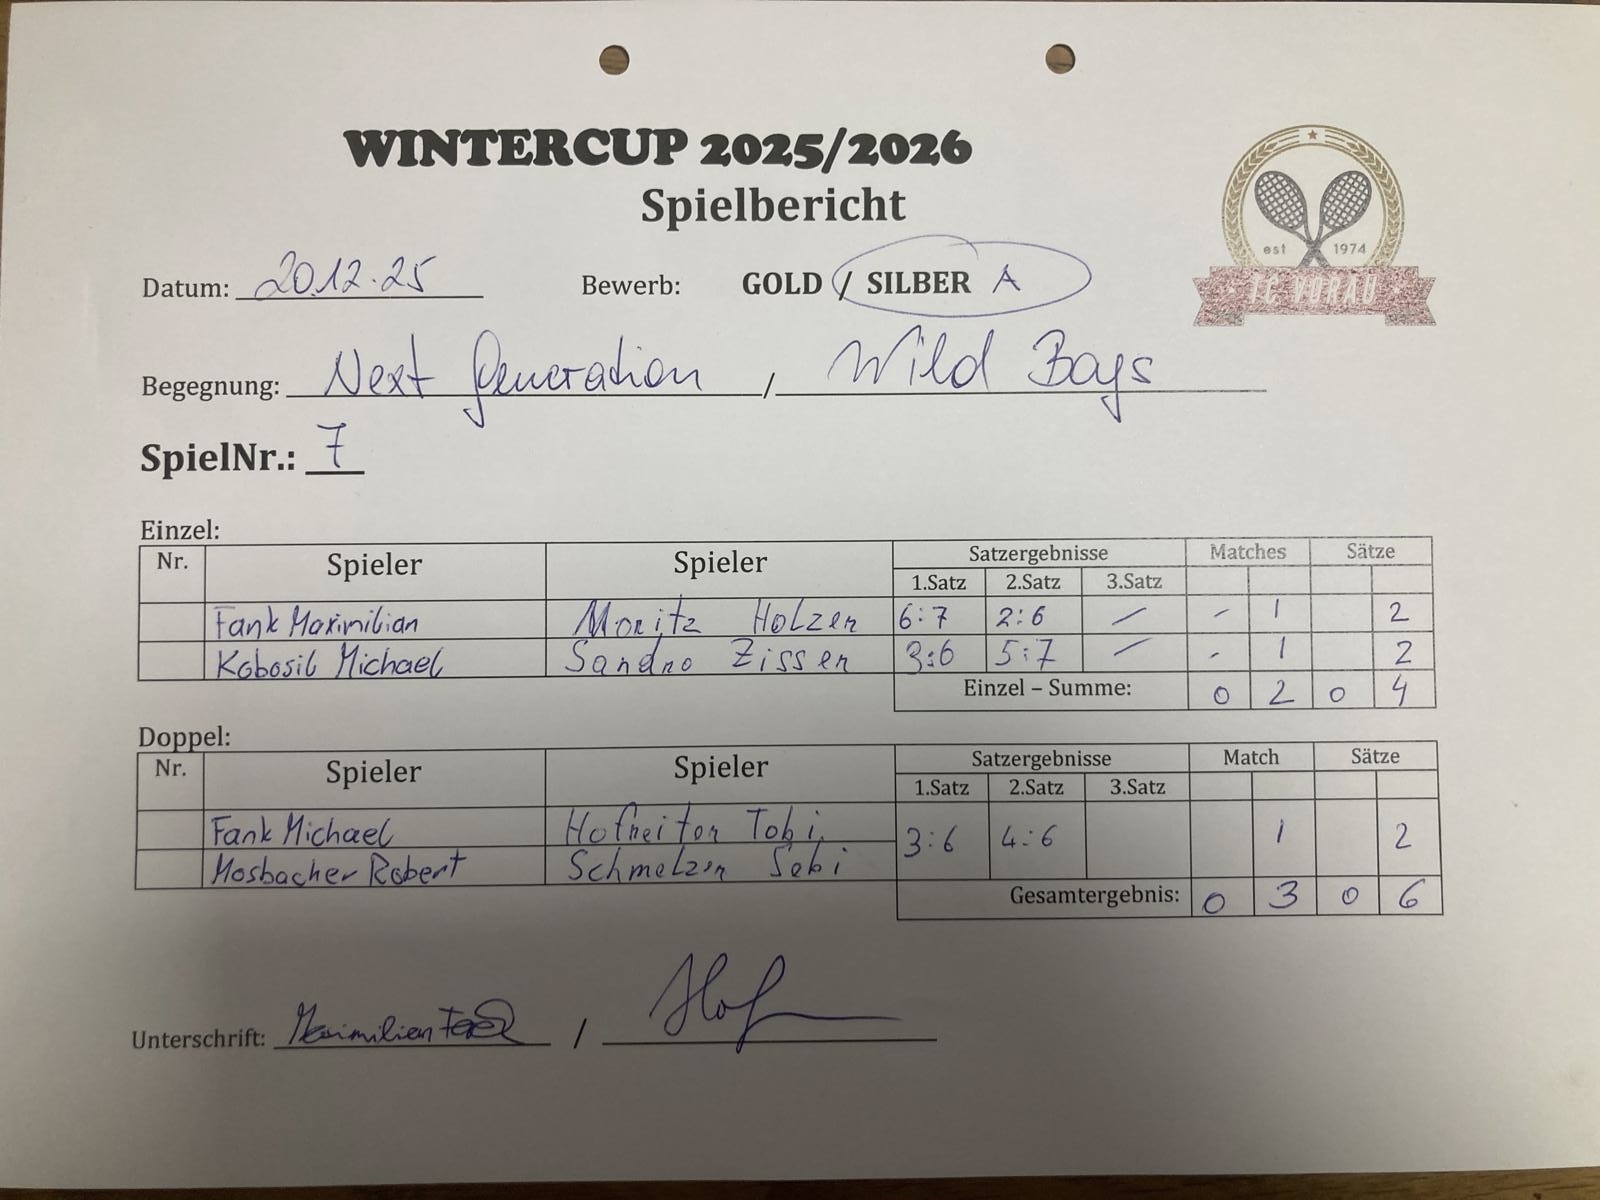 WINTERCUP 2025/2026
Spielbericht
est 1974
TC VORAU
Datum: 20.12.25 Bewerb: GOLD / SILBER A
Begegnung: Next Generation / Wild Boys
SpielNr.: 7
Einzel:
Nr. Spieler Spieler Satzergebnisse Matches Sätze
1.Satz 2.Satz 3.Satz
Fank Maximilian Moritz Holzer 6:7 2:6 – - 1 2
Kobosil Michael Sandro Zisser 3:6 5:7 – - 1 2
Einzel – Summe: 0 2 0 4
Doppel:
Nr. Spieler Spieler Satzergebnisse Match Sätze
1.Satz 2.Satz 3.Satz
Fank Michael Hofreiter Tobi 3:6 4:6 1 2
Mosbacher Robert Schmelzer Sebi
Gesamtergebnis: 0 3 0 6
Unterschrift: Maximilian Fank / Hof